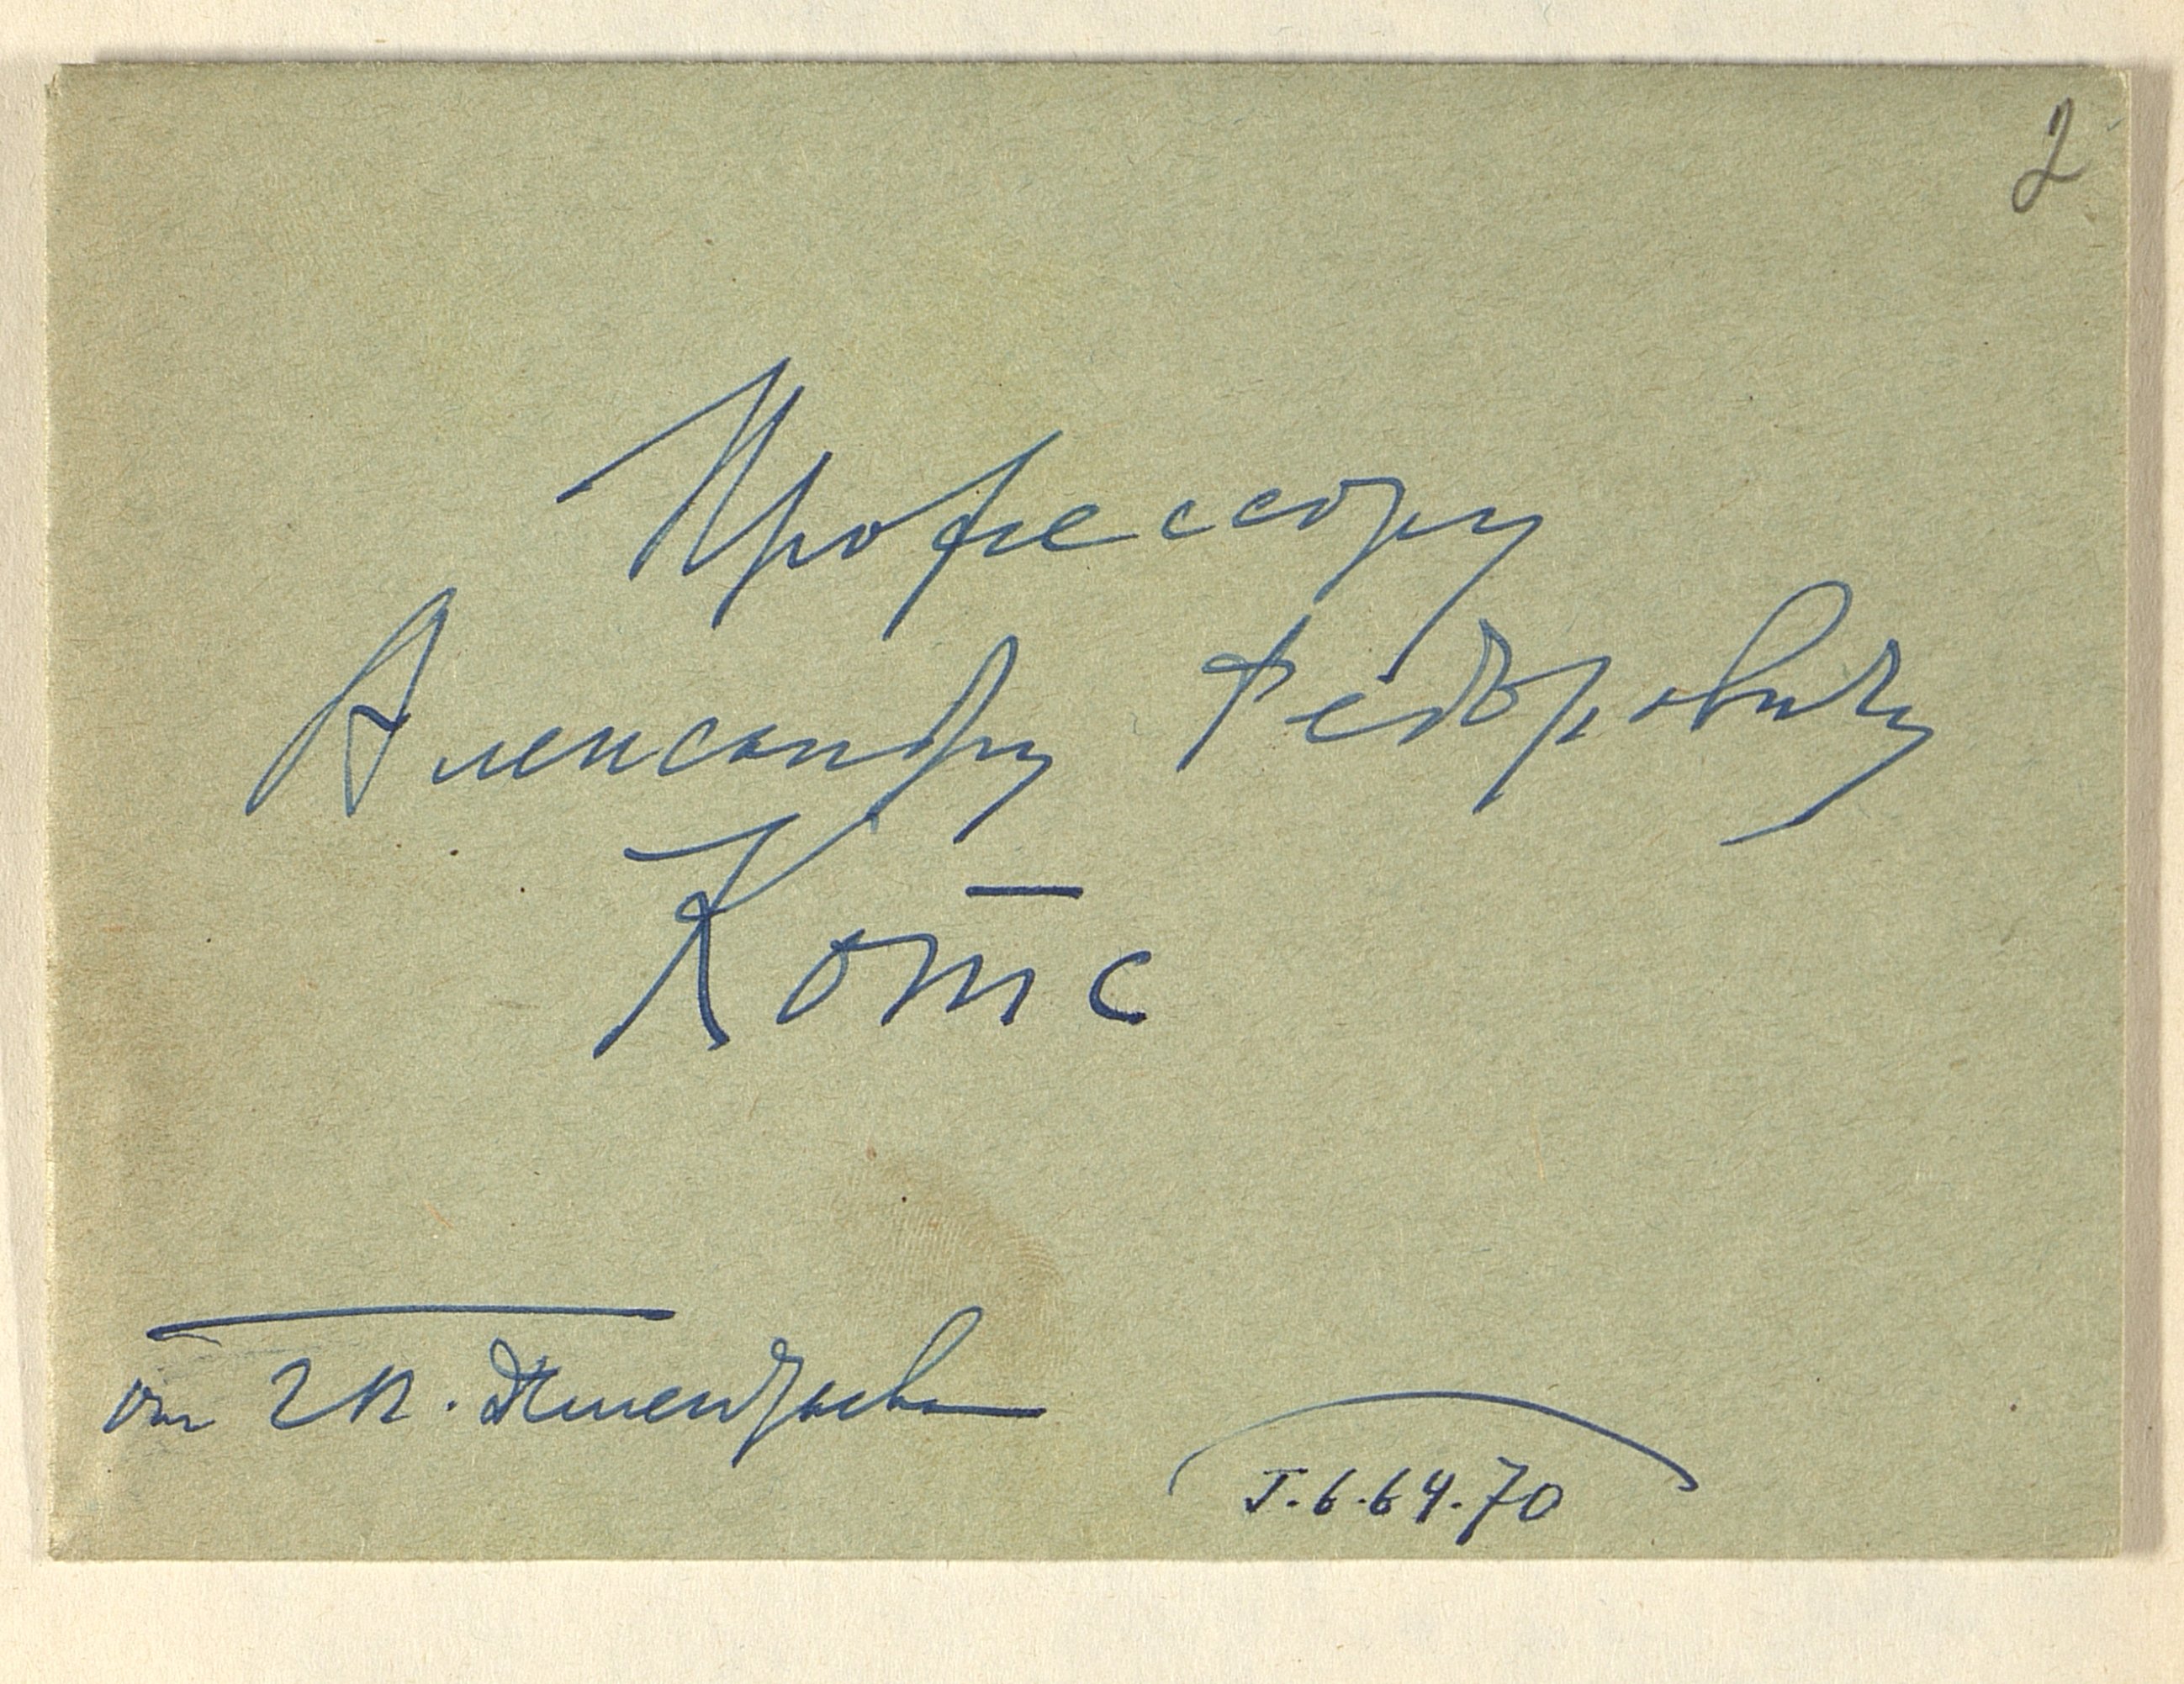 2
Профессору
Александру Федоровичу
Котс
от Г. П. Дементьева
Т. 6.64.70